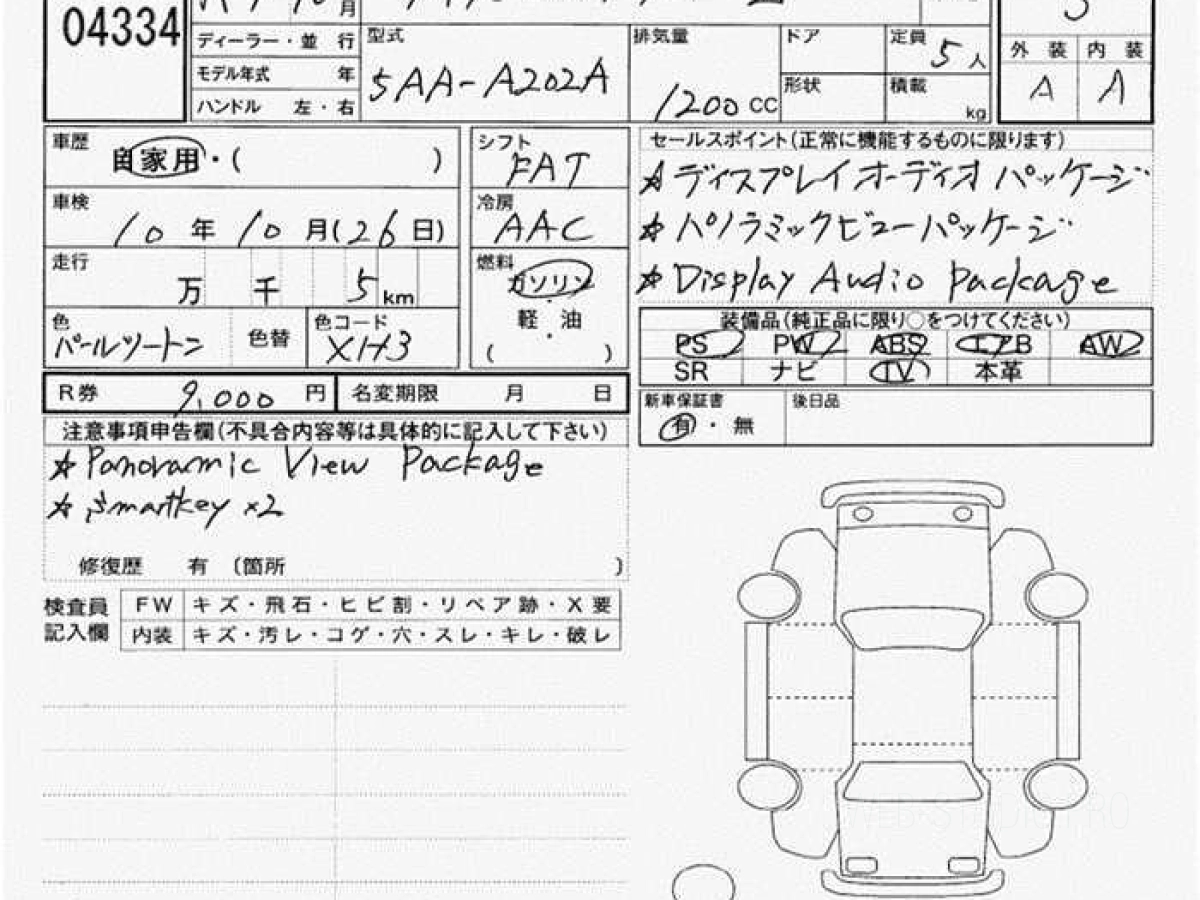 04334
月
ディーラー・並 行
型式
排気量
ドア
定員 5 人
外 装 内 装
モデル年式 年
5AA-A202A
1200 cc
形状
積載 kg
A A
ハンドル 左・右
車歴
自家用・( )
シフト
FAT
セールスポイント(正常に機能するものに限ります)
★ディスプレイオーディオパッケージ
車検
10 年 10 月(26日)
冷房
AAC
★パノラミックビューパッケージ
走行
万 千 5 km
燃料
ガソリン
・
軽・油
( )
★Display Audio Package
色
パールツートン
色替
色コード
XH3
装備品(純正品に限り○をつけてください)
PS PW ABS エアB AW
SR ナビ TV 本革
R券 9,000 円
名変期限 月 日
新車保証書
有・無
後日品
注意事項申告欄(不具合内容等は具体的に記入して下さい)
★Panoramic View Package
★Smartkey ×2
修復歴 有 〔箇所 〕
検査員
記入欄
FW キズ・飛石・ヒビ割・リペア跡・X要
内装 キズ・汚レ・コゲ・穴・スレ・キレ・破レ